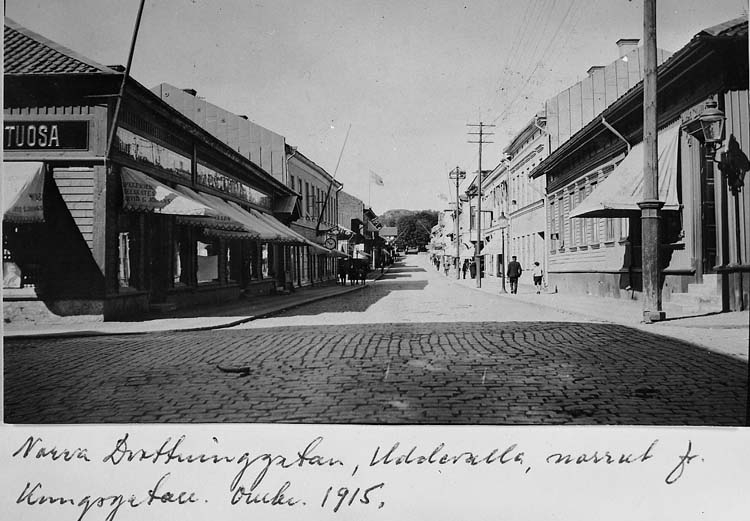 TUOSA
Norra Drottninggatan, Uddevalla, norrut fr.
Kungsgatan. Omkr. 1915.